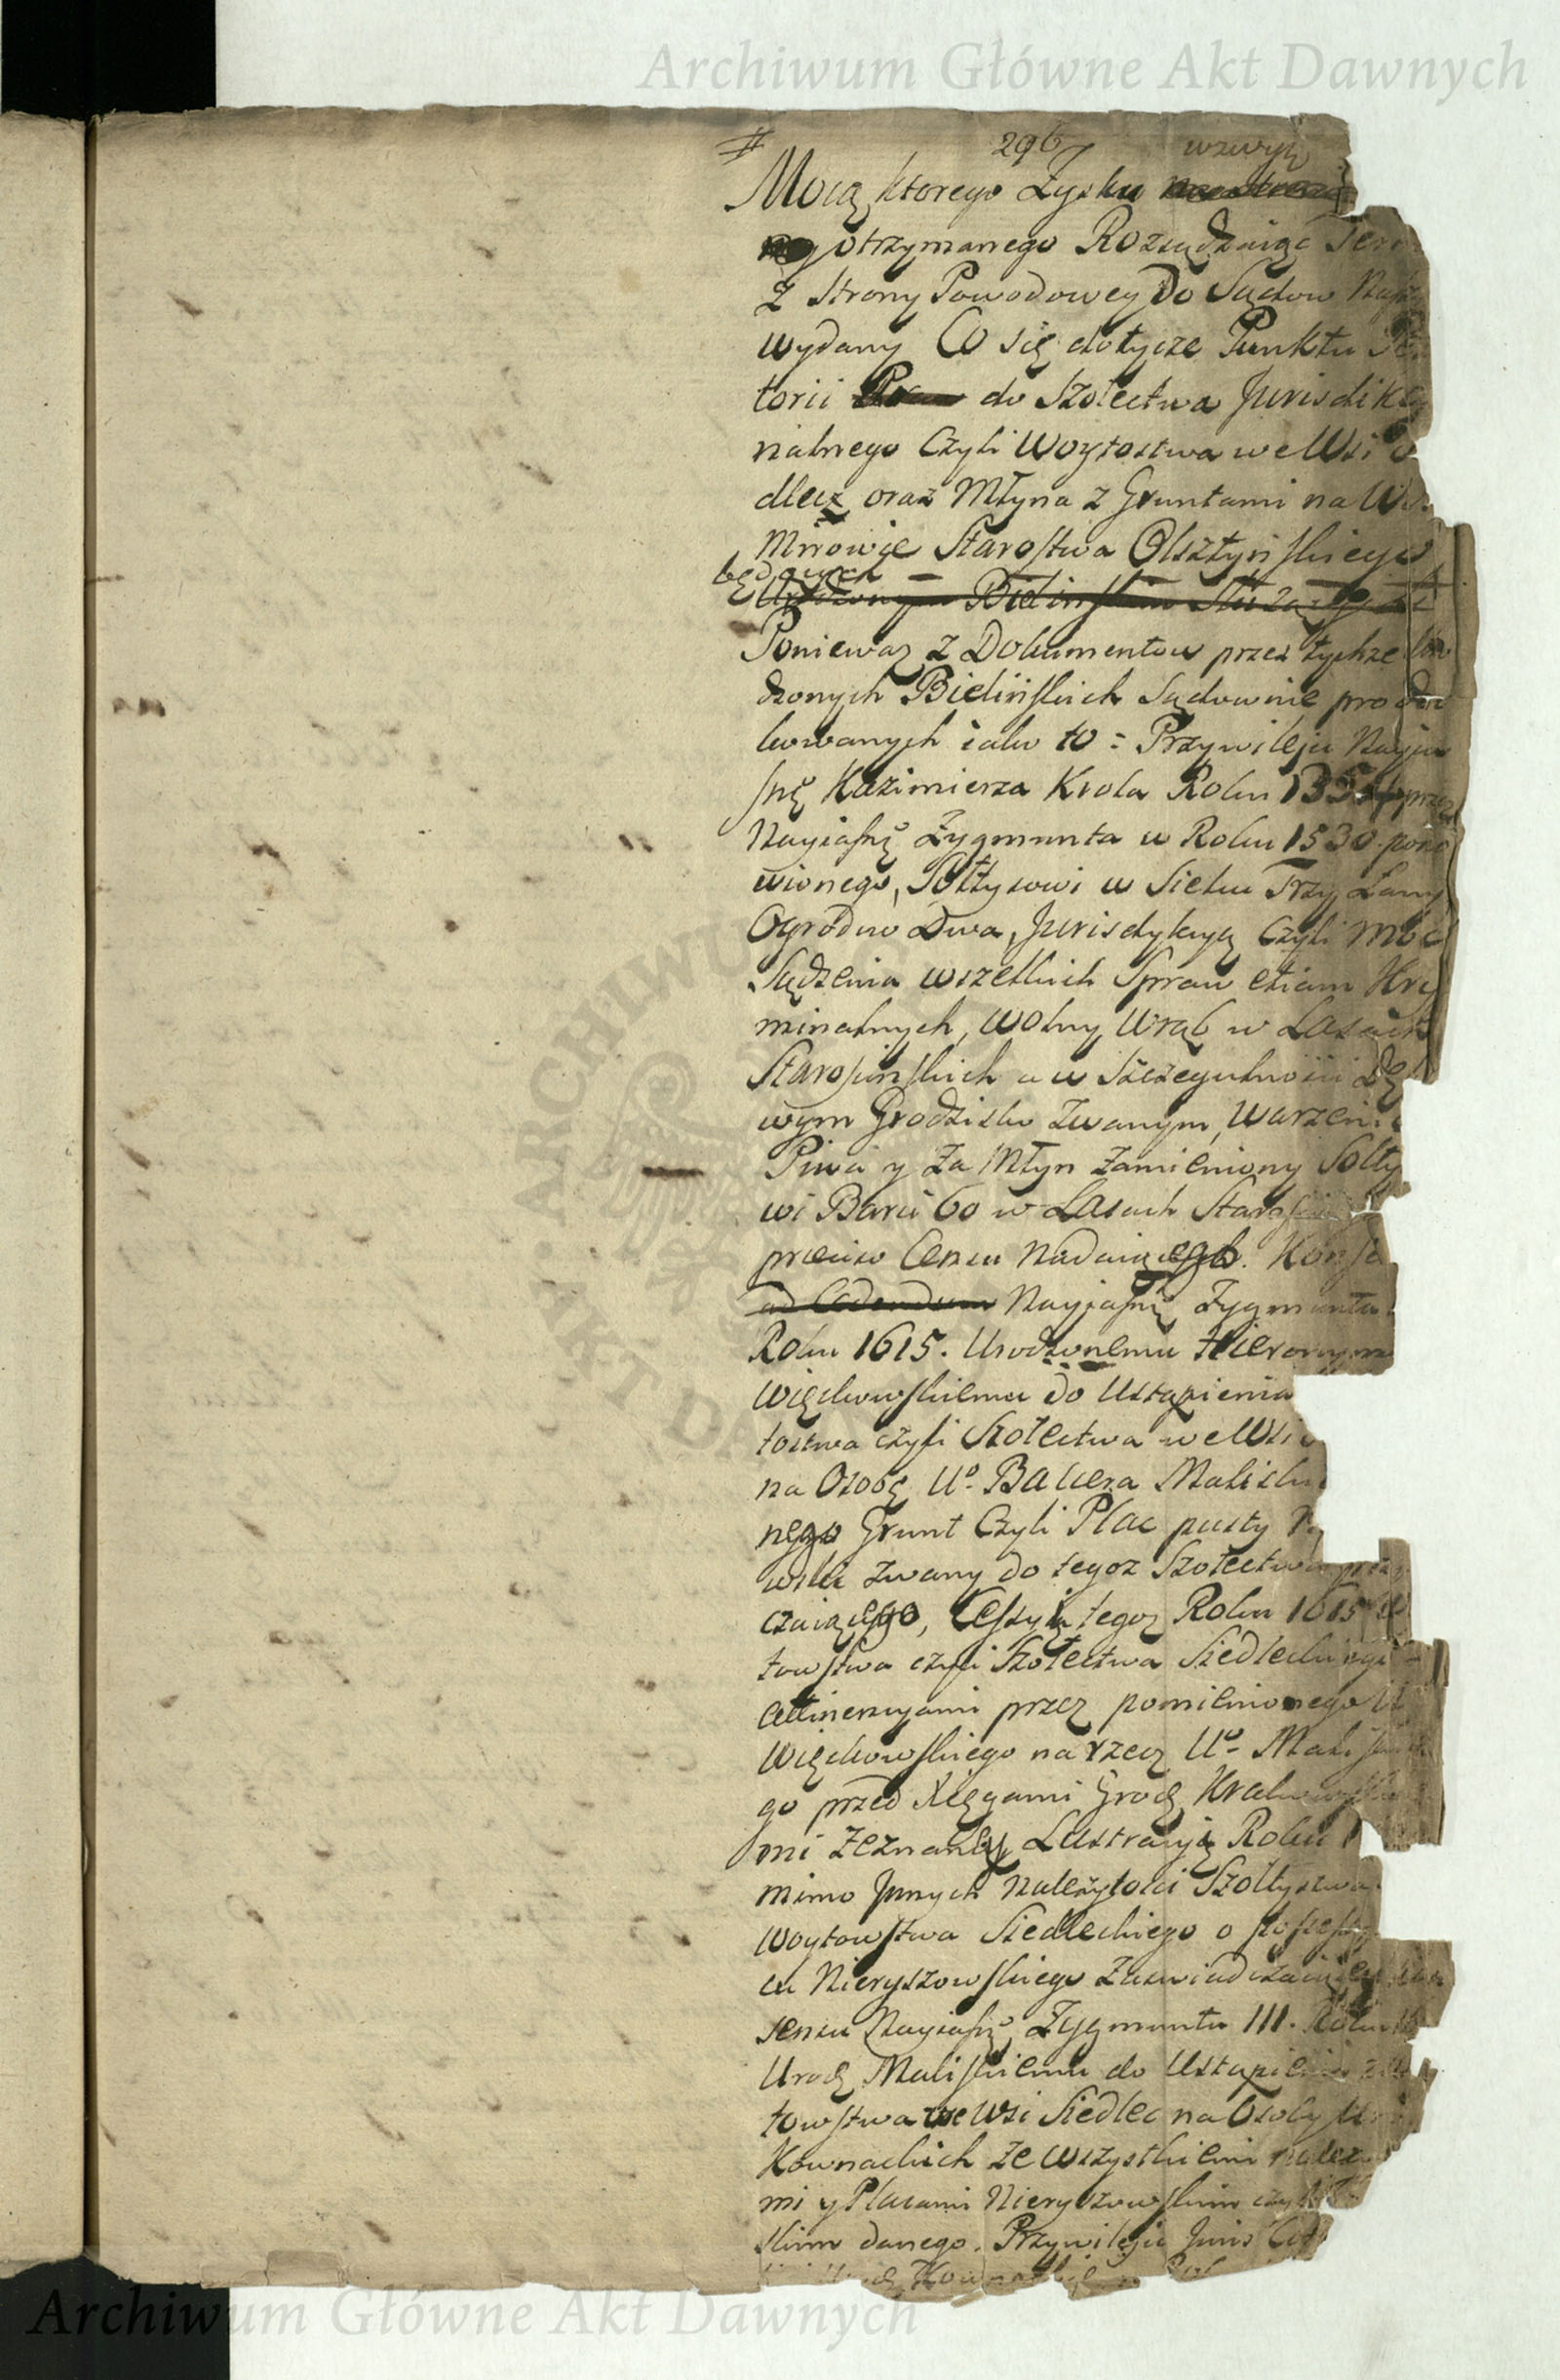 Archiwum Główne Akt Dawnych
# 296 wzwyż
Mocą ktorego Zysku
otrzymanego Rozsądzaiąc Ter
z Strony Powodowey Do Sądow Nasz
wydany Co się dotycze Punktu Pe
torii do Szołectwa Jurisdikcy
nalnego Czyli Woytostwa we Wsi
dlecz oraz Młyna z Gruntami na W
Mirowie Starostwa Olsztyńskiego
będących
Bielińskim
Poniewaz z Dokumentow przez tychze Uro
dzonych Bielińskich Sądownie prodo
kowanych iako to: Przywileju Nayia
snę Kazimierza Krola Roku 135 przez
Nayiasnę Zygmunta w Roku 1530 pono
wionego, Sołtysowi w Sielcu Trzy Łany
Ogrodow Dwa, Jurisdykcyą Czyli Moc
Sądzenia wszelkich Spraw etiam Kry
minalnych, Wolny Wrąb w Lasach
Starościńskich a w szczegulności
wym Grodzisku Zwanym, Warzeni
Piwa y Za Młyn Zamieniony Sołty
wi Barci 60 w Lasach Starościń
precise Censu Nadaiącego. Konse
ad Cedendum Nayjasnę Zygmunta
Roku 1615. Urodzonemu Hieronym
Więckowskiemu do Ustąpienia
tostwa czyli Szołectwa we Wsi
na Osobę Uo. Balcera Malisk
nego Grunt Czyli Plac pusty N
wski zwany do tegoz Szołectwa prze
czaiącego, Cessyą tegoz Roku 1615
towstwa czyli Szołectwa Siedleckiego
attinencyami przez pomienionego U
Więckowskiego na rzecz Uo. Mali
go przed Xięgami Grodz Krakowski
mi Zeznaną, Lustracyą Roku 1
mimo Jnnych Należytości Szołtystwa
Woytowstwa Siedleckiego o possess
cu Nieryszowskiego Zaswiadczaiącey
sensu Nayiasnę Zygmunta III. Roku 16
Urodz Maliskiemu do Ustąpienia
towstwa we Wsi Siedlec na Osoby Ur
Kownackich ze wszystkiemi należ
mi y Placami Nieryszowskim czyli
skim danego. Przywileju Jmis
Urodz Kownackie
Archiwum Główne Akt Dawnych